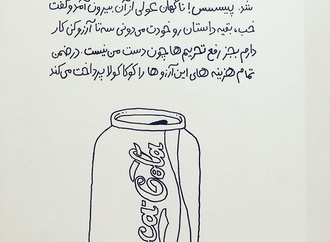 شد. پیسسس! ناگهان غولی از آن بیرون آمد و گفت
خب، بقیه داستان رو خودت می‌دونی سه تا آرزو کن کار
دارم بجز رفع تحریم ها چون دست من نیست. در ضمن
تمام هزینه های این آرزو ها را کوکا کولا پرداخت می کند
Coca-Cola